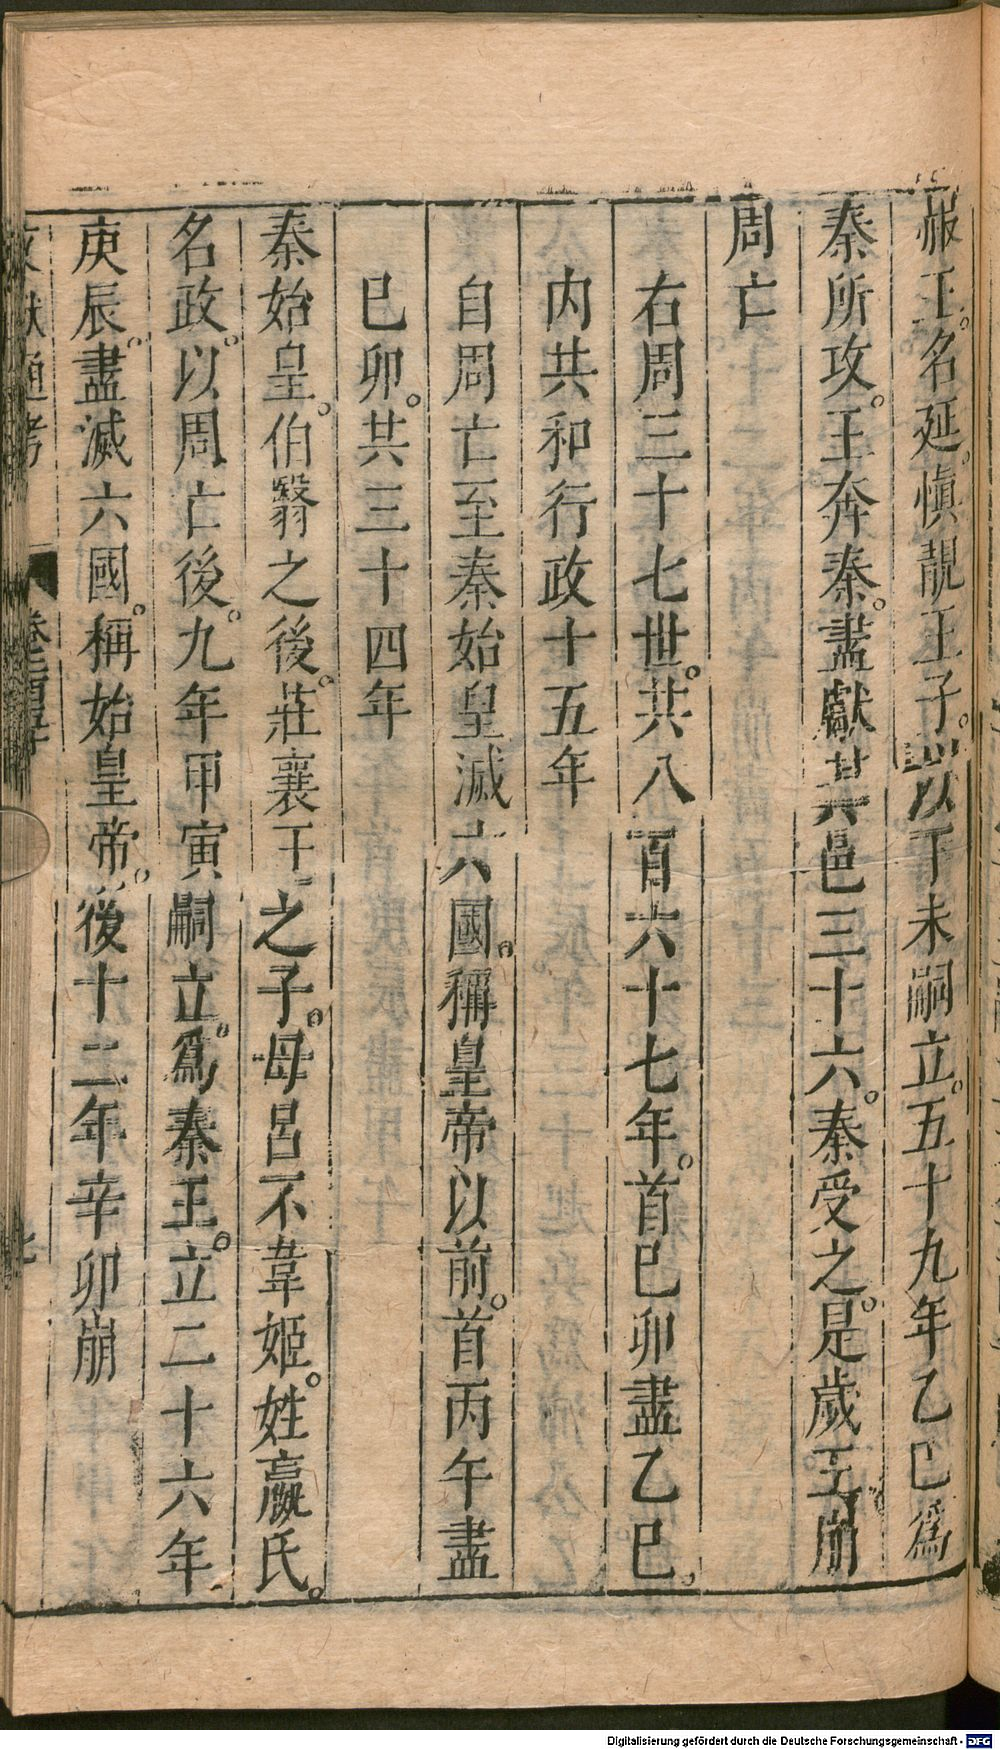 赧王。名延。慎靚王子。以丁未嗣立。五十九年乙巳爲
秦所攻。王奔秦。盡獻其邑三十六。秦受之。是歲王崩
周亡
右周三十七世。共八百六十七年。首巳卯盡乙巳。
内共和行政十五年
自周亡至秦始皇滅六國。稱皇帝以前。首丙午盡
巳卯。共三十四年
秦始皇。伯翳之後。莊襄王之子。母呂不韋姬。姓嬴氏。
名政。以周亡後。九年甲寅嗣立。爲秦王。立二十六年
庚辰。盡滅六國。稱始皇帝。後十二年辛卯崩
文獻通考
Digitalisierung gefördert durch die Deutsche Forschungsgemeinschaft - DFG